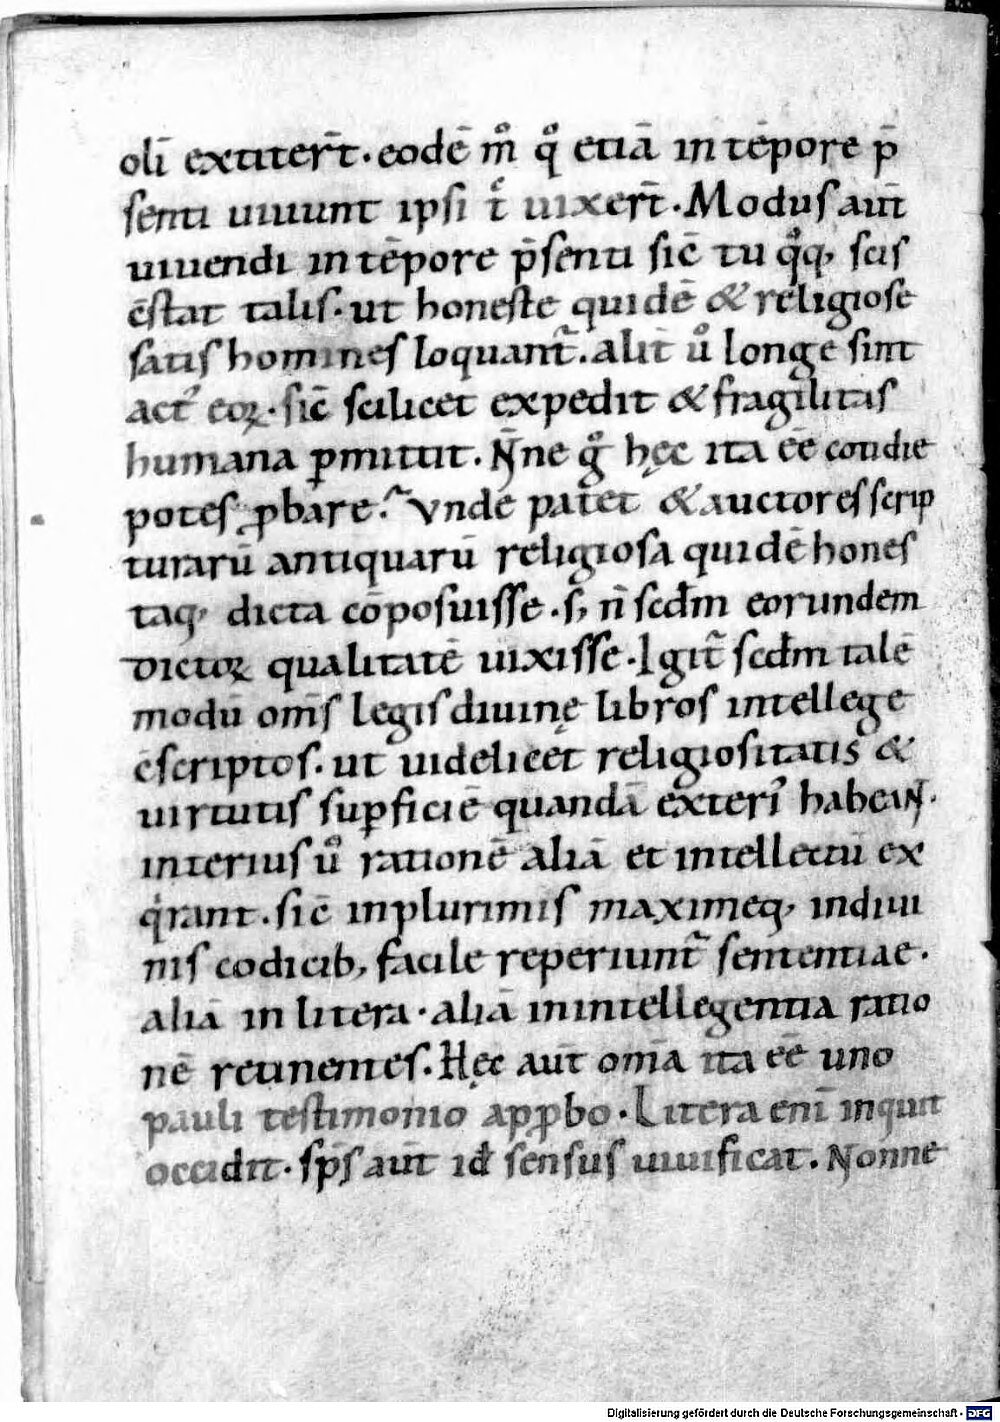 olī extiter̄t. eodē mͦ qͦ etiā in tēpore p̄
senti uiuunt ipsi tͤ uixer̄t. Modus aut̄
uiuendi in tēpore p̄senti sic̄ tu qͦq, scis
c̄stat talis. ut honeste quidē & religiose
satis homines loquant᷑. alit̄ uͦ longe sint
act᷒ eoꝝ. sic̄ scilicet expedit & fragilitas
humana ꝑmittit. N̄ne gͦ hęc ita eē cotidie
potes ꝓbare? Vnde patet & auctores scrip
turarū antiquarū religiosa quidē hones
taq, dicta cōposuisse. s, n̄ scd̄m eorundem
dictoꝝ qualitatē uixisse. Igit᷑ scd̄m talē
modū om̄s legis diuinę libros intellege
c̄scriptos. ut uidelicet religiositatis &
uirtutis suꝑficiē quandā exteri᷒ habeant.
interius uͦ rationē aliā et intellectū ex
qͥrant. sic̄ in plurimis maximeq, in diui
nis codicib, facile reperiunt᷑ sententiae.
aliā in litera. aliā in intellegentia ratio
nē retinentes. Hęc aut̄ om̄a ita eē uno
pauli testimonio apꝓbo. Litera enī inquit
occidit. sp̄s aut̄ id̄ sensus uiuificat. Nonne
Digitalisierung gefördert durch die Deutsche Forschungsgemeinschaft - DFG